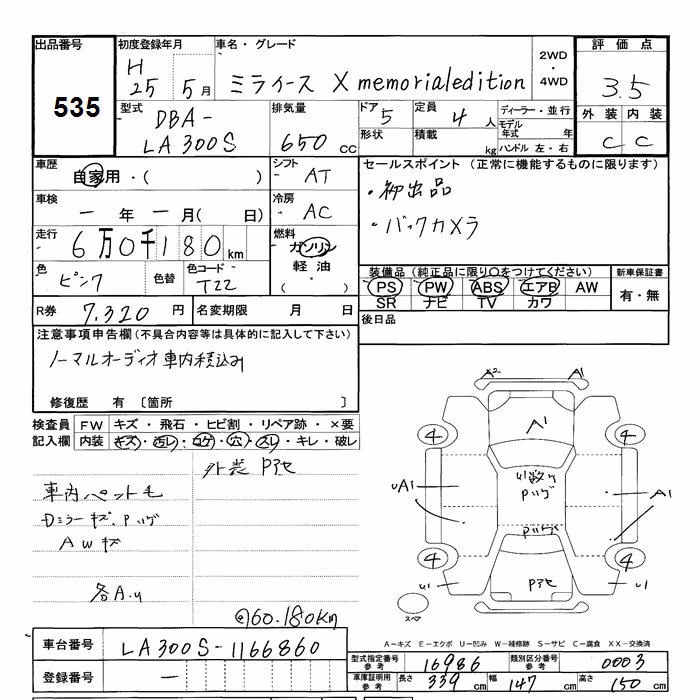 出品番号
535
初度登録年月
H
25 5月
車名・グレード
ミライース X memorialedition
2WD
・
4WD
評価点
3.5
外装 内装
C C
型式
DBA-
LA300S
排気量
650 cc
ドア
5
形状
定員
4 人
積載
kg
ディーラー・並行
モデル
年式 年
ハンドル 左・右
車歴
自家用・( )
シフト
AT
車検
- 年 - 月( 日)
冷房
AC
走行
6万0千180km
燃料
ガソリン
軽油
・( )
色
ピンク
色替
色コード
T22
R券
7.320 円
名変期限 月 日
セールスポイント (正常に機能するものに限ります)
・初出品
・バックカメラ
装備品 (純正品に限り○をつけてください)
PS PW ABS エアB AW
SR ナビ TV カワ
新車保証書
有・無
後日品
注意事項申告欄(不具合内容等は具体的に記入して下さい)
ノーマルオーディオ車内積込み
修復歴 有 〔箇所 〕
検査員
記入欄
FW キズ・飛石・ヒビ割・リペア跡・×要
内装 キズ・汚レ・コゲ・穴・スレ・キレ・破レ
外装 Pアセ
車内ペット毛
Dミラーキズ、Pハゲ
AWキズ
各A.u
@60.180km
A2 A1
A1
4 4
u数ケ
Pハゲ
uA1 A1
Pハゲ
4 4
u1 Pアセ u1
スペア
A-キズ E-エクボ U-凹み W-補修跡 S-サビ C-腐食 XX-交換済
車台番号
LA300S-1166860
登録番号
-
型式指定番号
参考
16986
類別区分番号
参考
0003
車庫証明用
参考
長さ 339 cm 幅 147 cm 高さ 150 cm